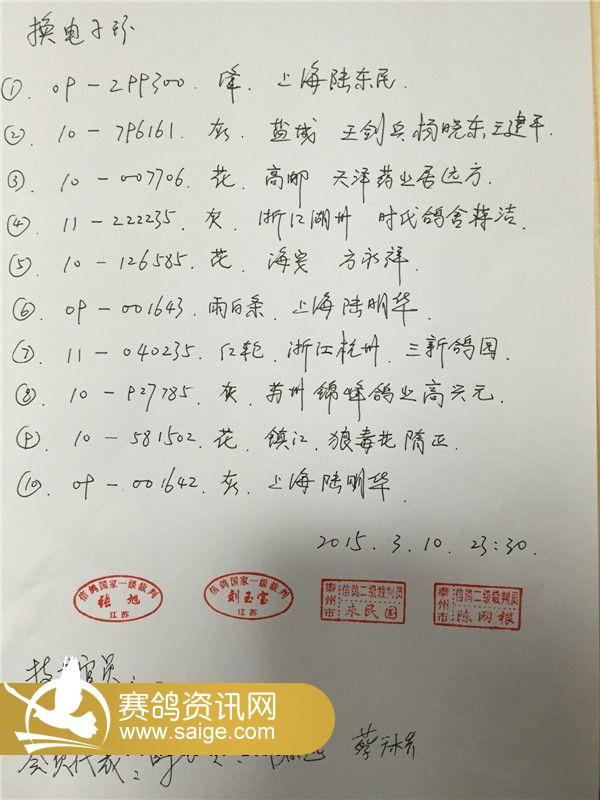 换电子环
① 09-299300. 绛. 上海陆东民.
② 10-796161. 灰. 盐城 王剑兵杨晓东王建平.
③ 10-007706. 花. 高邮 天泽药业居远方.
④ 11-222235. 灰. 浙江湖州 时代鸽舍蒋洁.
⑤ 10-126585. 花. 海安 方永祥.
⑥ 09-001643. 雨白条. 上海陆明华.
⑦ 11-040235. 红轮. 浙江杭州. 三新鸽园.
⑧ 10-927785. 灰. 苏州锦峰鸽业高兴元.
⑨ 10-581502. 花. 镇江. 狼毒花隋正.
⑩ 09-001642. 灰. 上海陆明华.
2015. 3. 10. 23:30.
信鸽国家一级裁判 张旭 江苏
信鸽国家一级裁判 刘玉宝 江苏
泰州市 信鸽二级裁判员 朱民国
泰州市 信鸽二级裁判员 陈网根
赛鸽资讯网
www.saige.com
会员代表: